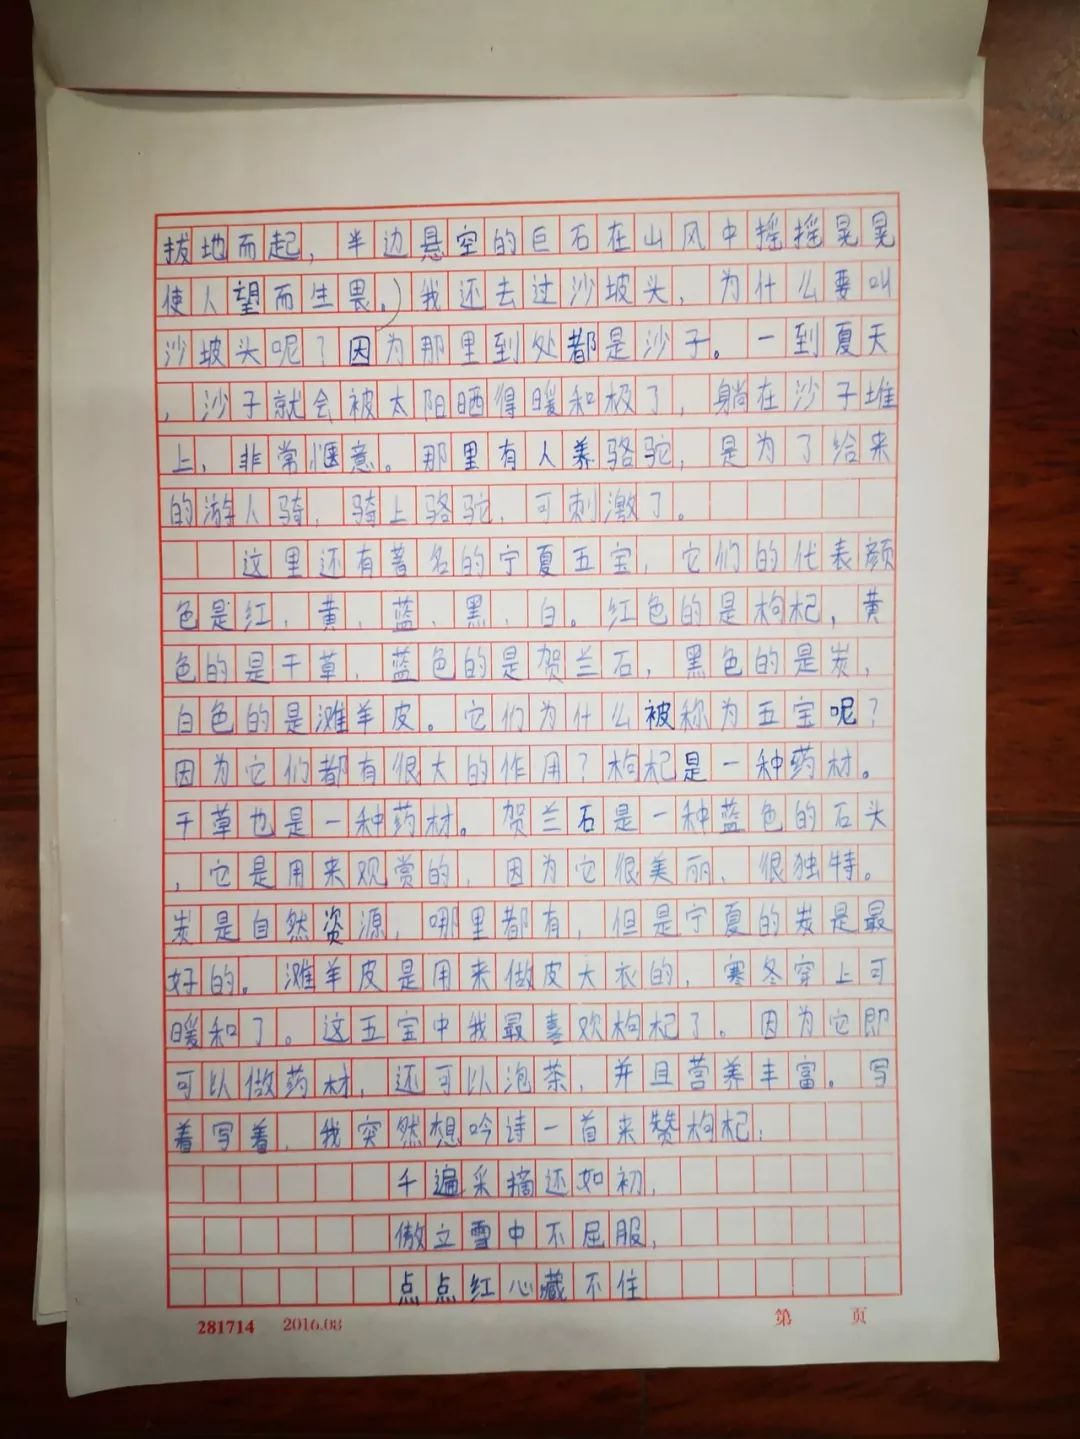 拔地而起，半边悬空的巨石在山风中摇摇晃晃
使人望而生畏。）我还去过沙坡头，为什么要叫
沙坡头呢？因为那里到处都是沙子。一到夏天
，沙子就会被太阳晒得暖和极了，躺在沙子堆
上，非常惬意。那里有人养骆驼，是为了给来
的游人骑，骑上骆驼，可刺激了。
这里还有著名的宁夏五宝，它们的代表颜
色是红、黄、蓝、黑、白。红色的是枸杞，黄
色的是干草，蓝色的是贺兰石，黑色的是炭，
白色的是滩羊皮。它们为什么被称为五宝呢？
因为它们都有很大的作用？枸杞是一种药材。
干草也是一种药材。贺兰石是一种蓝色的石头
，它是用来观赏的，因为它很美丽、很独特。
炭是自然资源，哪里都有，但是宁夏的炭是最
好的。滩羊皮是用来做皮大衣的，寒冬穿上可
暖和了。这五宝中我最喜欢枸杞了。因为它即
可以做药材，还可以泡茶，并且营养丰富。写
着写着，我突然想吟诗一首来赞枸杞：
千遍采摘还如初，
傲立雪中不屈服，
点点红心藏不住
281714 2016.08 第 页